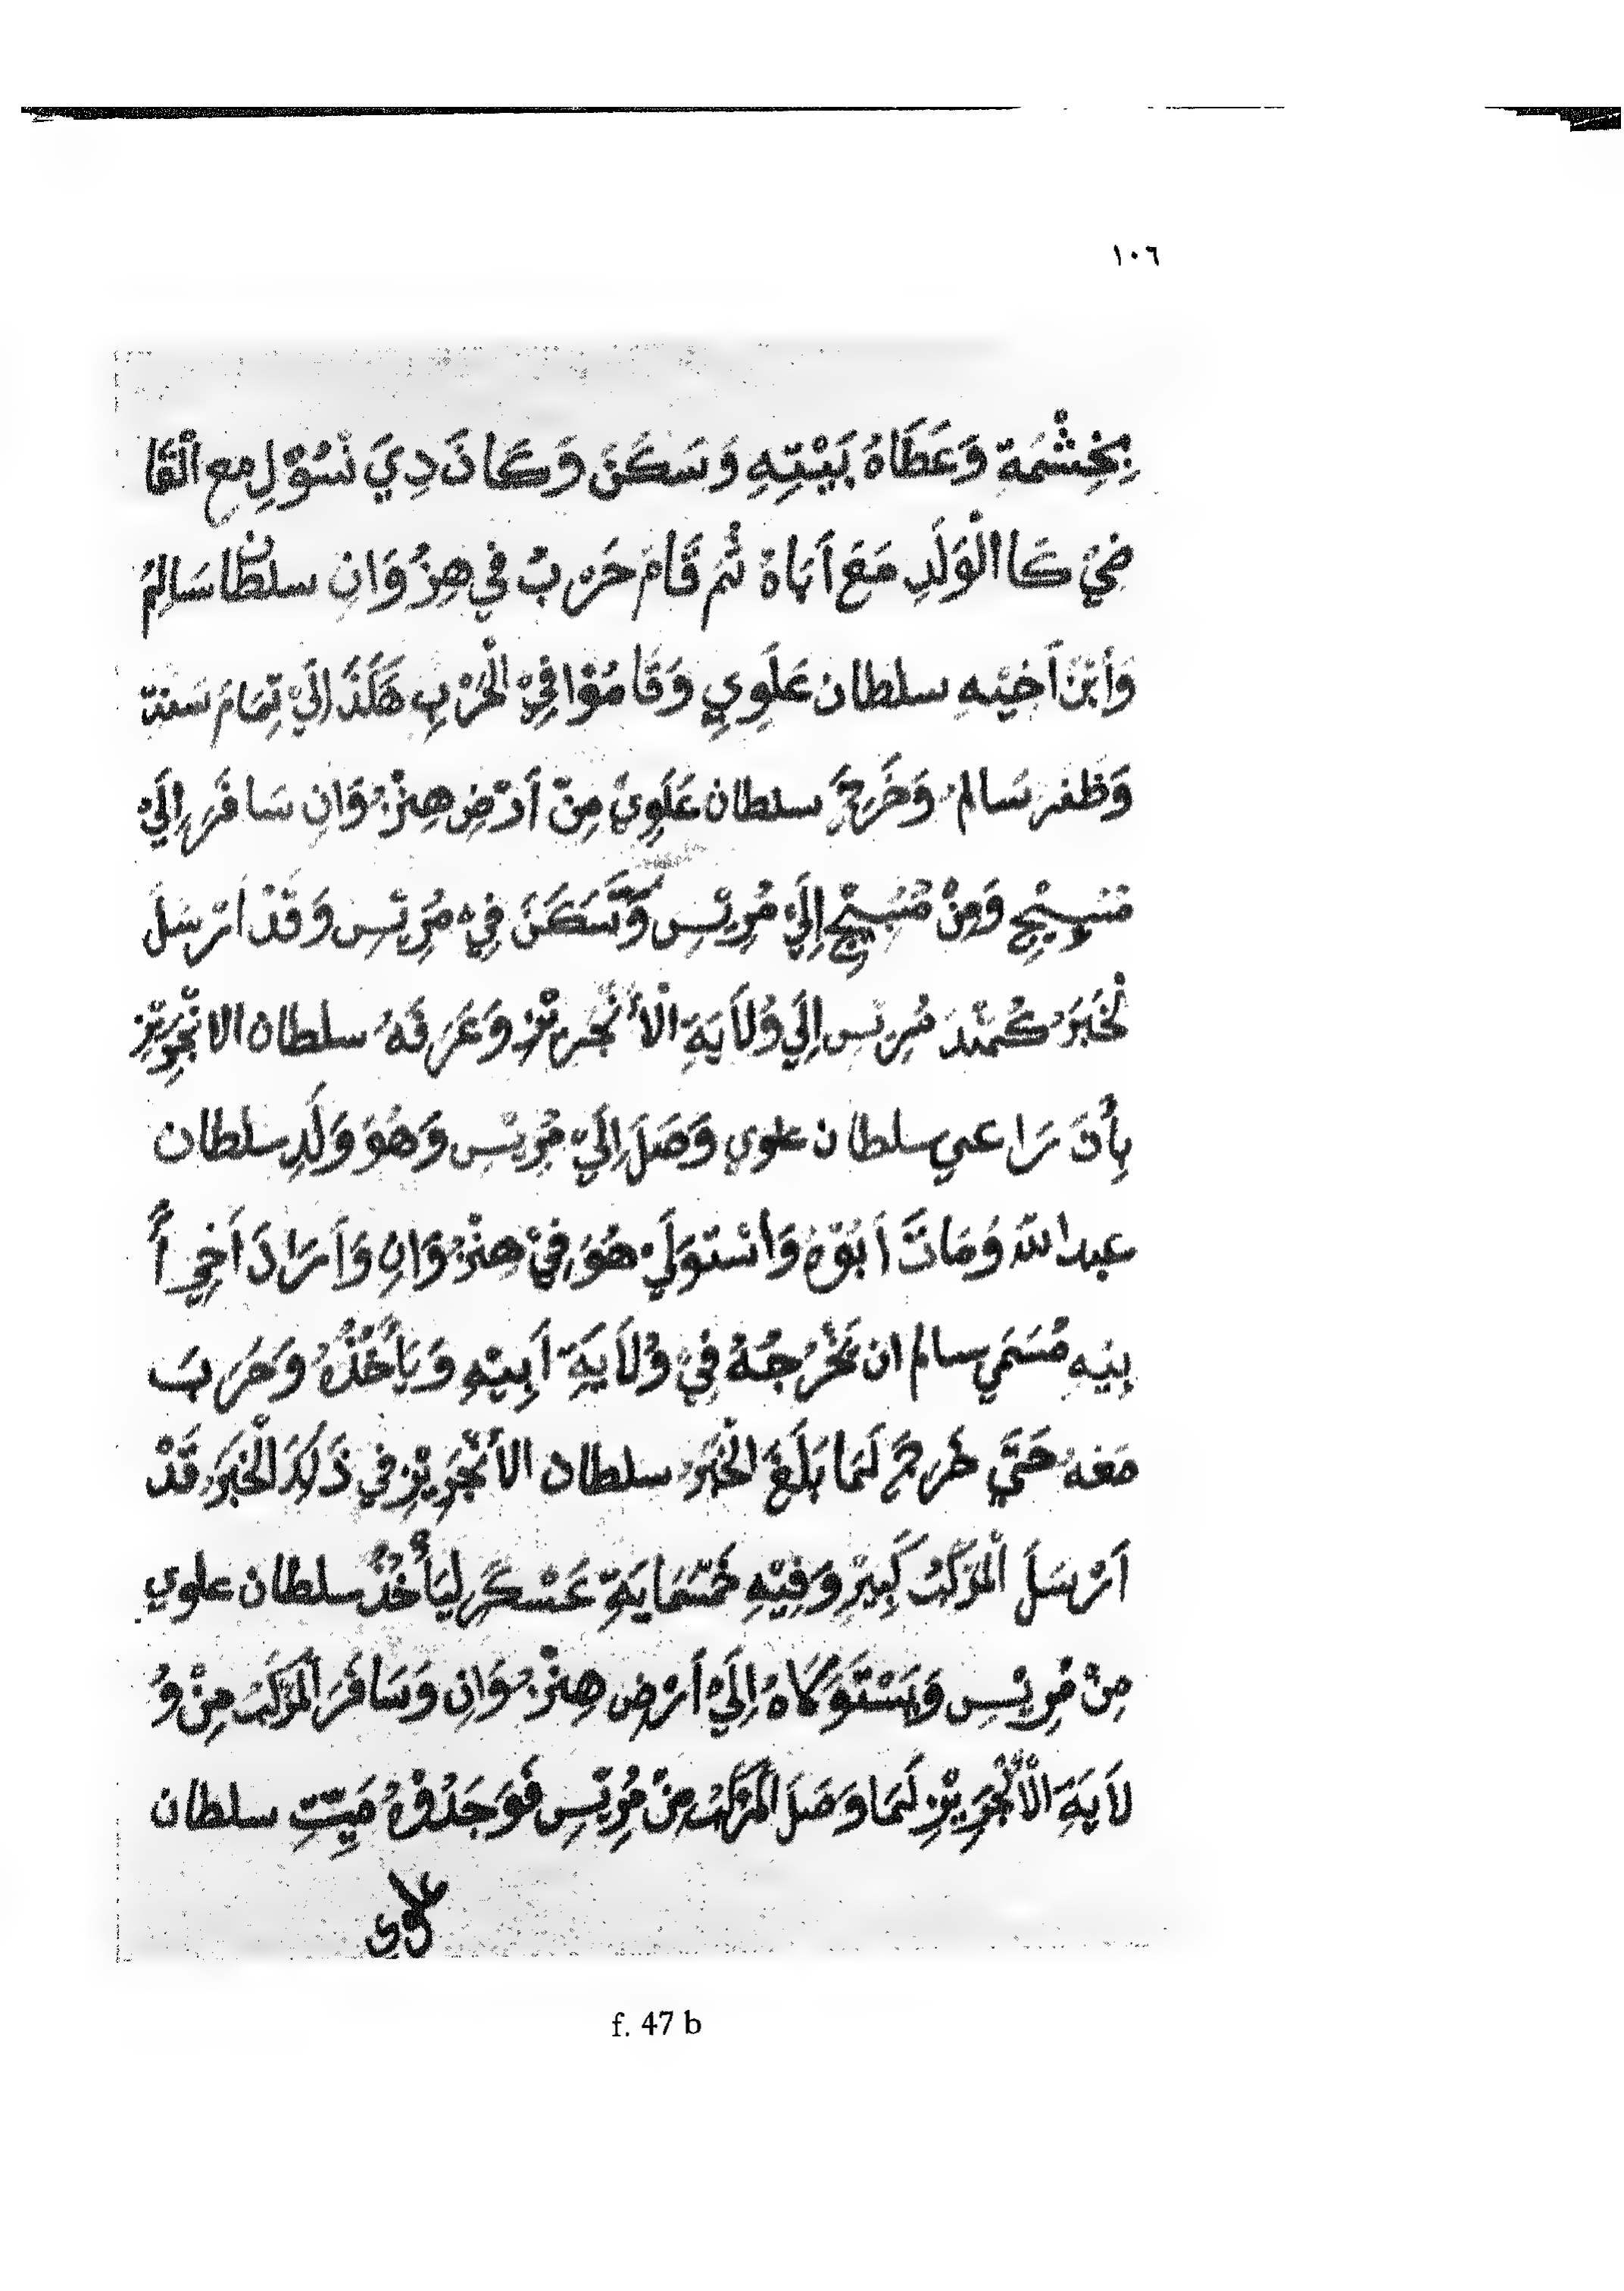 ١٠٦
بِخِشْمَة وَعَطَاهُ بَيْتِهِ وَسَكَنَ وَكَانَ دِيَ نْسُوْلِ مع الْقَا
ضِيْ كَا الْوَلَدِ مَعَ أَبَاهُ ثُمَ قَامَ حَرْبُ فِي هِنْزُوَانِ سلطان سَالِمُ
وَأبْنَ أَخِيْهِ سلطان عَلَوِي وَقَامُوْا فِيْ الْحَرْبِ هَكَذَا اِلَيْ تِمَامَ سَنَة
وَظفر سَالم وَخَرَجَ سلطان عَلَوِيْ مِنْ أَرْضِ هِنْزُوَانِ سَافَرَ اِلَيْ
مْسِبِيْجِ وَمِنْ مْسُبِيْجِ اِلَيْ مُرِيْسِ وَسَكَنَ فِيْ مُرِيْسِ وَقَدْ اَرْسَلَ
لْخَبَرَ كُمَنْدَ مُرِيْسِ اِلَي وُلاَيَةِ الْأَنْجَرِيْزِ وَعَرَفَهُ سلطان الانْجَرِيْزِ
بِأَنَ رَاعي سلطان علوي وَصَلَ اِلَيْ مُرِيْسِ وَهُوَ وَلَدِ سلطان
عبد اللّه وَمَاتَ أَبُوْهُ وَاسْتَوَلَيْ هُوَ فِيْ هِنْزُوَانِ وَأَرَادَ أَخِي أَ
بِيْهِ مُسَمَي سالم ان يَخْرُجُهُ فِيْ وُلاَيَةِ أَبِيْهِ وَيَأخُذُهُ وَحَرَبَ
مَعَهُ حَتَّيَ خَرَجَ لَمَا بَلَغَ الْخَبَرُ سلطان الأنْجَرِيْزِ فِي ذَلِكَ الْخَبَرَ قَدْ
اَرْسَلَ الْمَرْكَبُ كَبِيْرِ وَفِيْهِ خَمْسَمَايَةِ عَسْكَرِ لِيَأْخُذُ سلطان علوي
مِنْ مُرِيْسِ وَيَسْتَوَكَاهُ اِلَيْ أَرْضِ هِنْزُوَانِ وَسَافَرَ الْمَرْكَبُ مِنْ وُ
لاَيَةِ الْأَنْجَرِيْزِ لَمَا وَصَلَ الْمَرْكَبُ مِنْ مُرِيْسِ فَوَجَدُوْهُ مَيِّتِ سلطان
علوي
f. 47 b